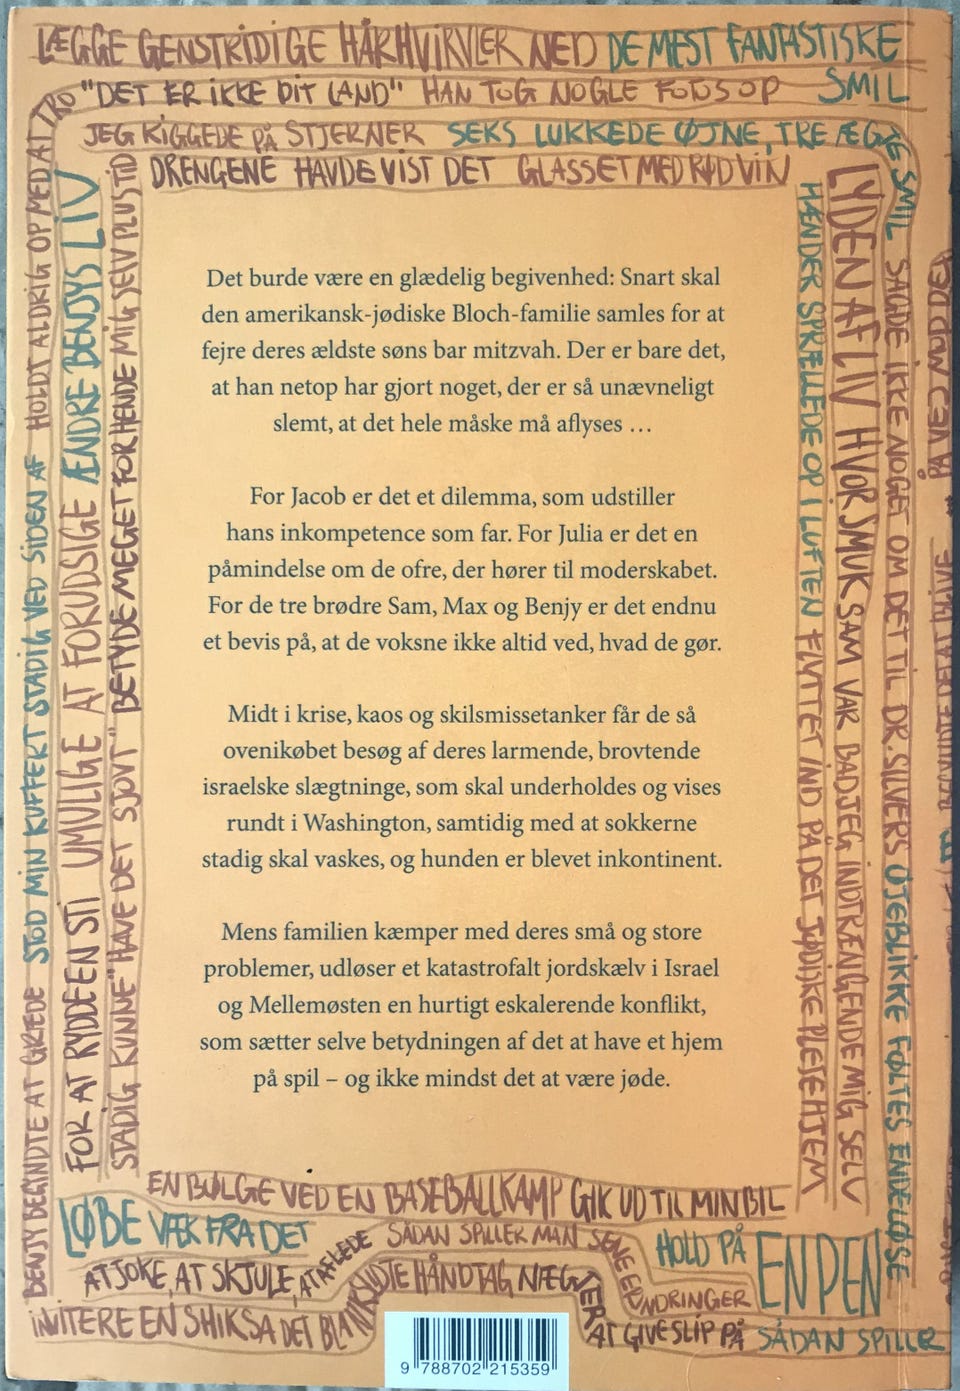 LÆGGE GENSTRIDIGE HÅRHVIRVLER NED DE MEST FANTASTISKE
SMIL
"DET ER IKKE DIT LAND" HAN TOG NOGLE FOTOS OP
JEG KIGGEDE PÅ STJERNER SEKS LUKKEDE ØJNE, TRE ÆGTE SMIL
DRENGENE HAVDE VIST DET GLASSET MED RØDVIN
BENJY BEGINDTE AT GRÆDE STOD MIN KUFFERT STADIG VED SIDEN AF HOLDT ALDRIG OP MED AT TRO
FOR AT RYDDE EN STI UMULIGE AT FORUDSIGE ÆNDRE BENJYS LIV
STADIG KUNNE "HAVE DET SJOVT" BETYDE MEGET FOR HENDE MIG SELV PLUS TID
Det burde være en glædelig begivenhed: Snart skal
den amerikansk-jødiske Bloch-familie samles for at
fejre deres ældste søns bar mitzvah. Der er bare det,
at han netop har gjort noget, der er så unævneligt
slemt, at det hele måske må aflyses …
For Jacob er det et dilemma, som udstiller
hans inkompetence som far. For Julia er det en
påmindelse om de ofre, der hører til moderskabet.
For de tre brødre Sam, Max og Benjy er det endnu
et bevis på, at de voksne ikke altid ved, hvad de gør.
Midt i krise, kaos og skilsmissetanker får de så
ovenikøbet besøg af deres larmende, brovtende
israelske slægtninge, som skal underholdes og vises
rundt i Washington, samtidig med at sokkerne
stadig skal vaskes, og hunden er blevet inkontinent.
Mens familien kæmper med deres små og store
problemer, udløser et katastrofalt jordskælv i Israel
og Mellemøsten en hurtigt eskalerende konflikt,
som sætter selve betydningen af det at have et hjem
på spil – og ikke mindst det at være jøde.
HÆNDER SPRÆLLEDE OP I LUFTEN FLYTTET IND PÅ DET JØDISKE PLEJEHJEM
LYDEN AF LIV HVOR SMUK SAM VAR BAD JEG INDTRÆNGENDE MIG SELV
SAGDE IKKE NOGET OM DET TIL DR. SILVERS ØJEBLIKKE FØLTES ENDELØSE
EN BØLGE VED EN BASEBALLKAMP GIK UD TIL MIN BIL
LØBE VÆK FRA DET SÅDAN SPILLER MAN SENE ERINDRINGER HOLD PÅ EN PEN
AT JOKE, AT SKJULE, AT AFLEDE HÅNDTAG
INVITERE EN SHIKSA DET AT GIVE SLIP PÅ SÅDAN SPILLER
9 788702 215359